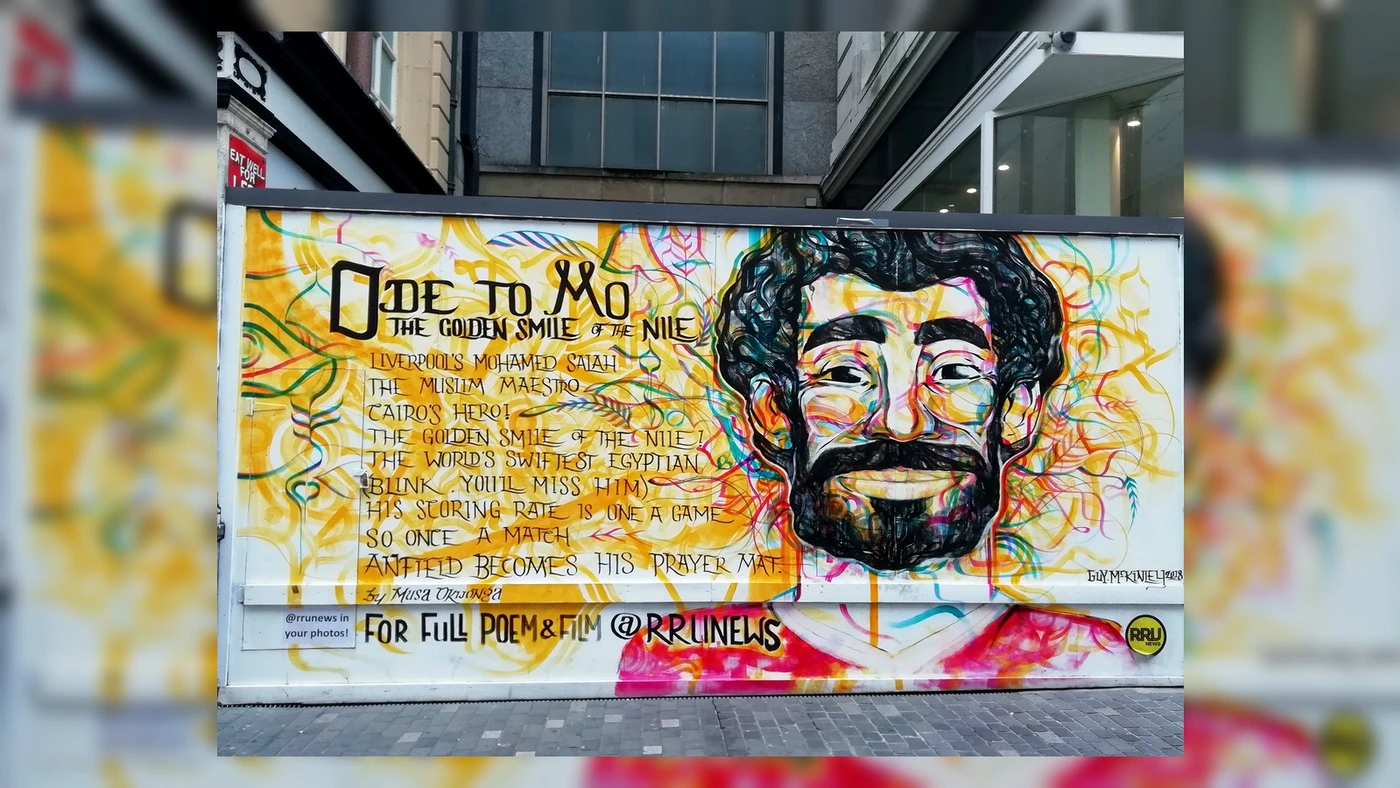 EAT WELL
FOR
ODE TO MO
THE GOLDEN SMILE OF THE NILE
LIVERPOOL'S MOHAMED SALAH
THE MUSLIM MAESTRO
CAIRO'S HERO!
THE GOLDEN SMILE OF THE NILE!
THE WORLD'S SWIFTEST EGYPTIAN
(BLINK, YOU'LL MISS HIM)
HIS SCORING RATE IS ONE A GAME
SO ONCE A MATCH
ANFIELD BECOMES HIS PRAYER MAT.
by MUSA OKWONGA
GUY MCKINLEY 2018
@rrunews in
your photos!
FOR FULL POEM & FILM @RRUNEWS
RRU
NEWS